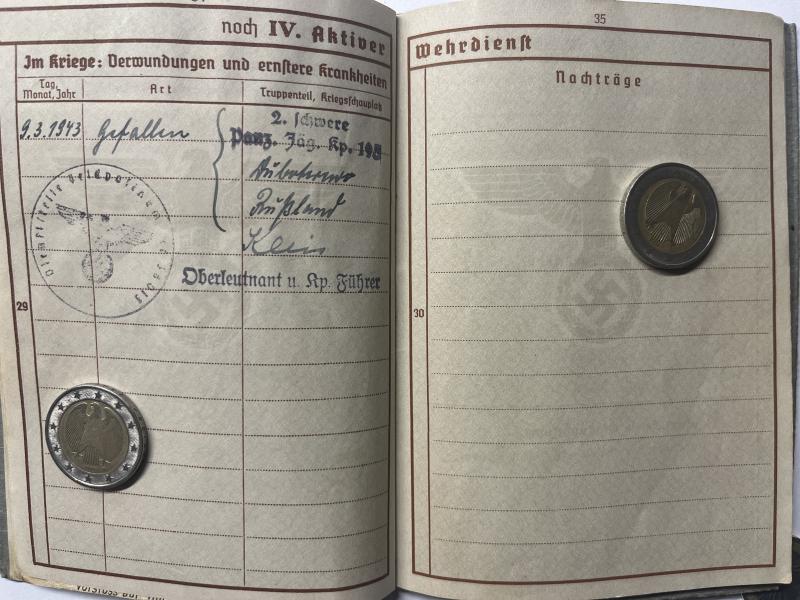 noch IV. Aktiver
Im Kriege: Verwundungen und ernstere Krankheiten
Tag, Monat, Jahr
Art
Truppenteil, Kriegsschauplatz
9.3.1943 Gefallen
2. schwere
Panz. Jäg. Kp. 195
Rußland
Klein
Oberleutnant u. Kp. Führer
29
35
Wehrdienst
Nachträge
30